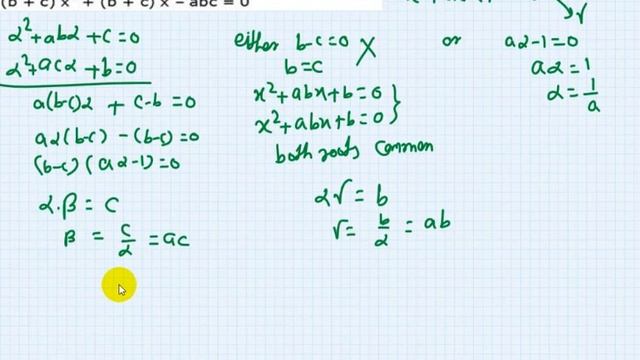 (b + c) x² + (b + c) x − abc = 0
α²+abα+c=0
α²+acα+b=0
a(b-c)α + c-b=0
aα(b-c) -(b-c)=0
(b-c)(aα-1)=0
α.β = c
β = c/α = ac
either b-c=0 X
b=c
x²+abx+b=0 }
x²+abx+b=0 }
both roots common
αr = b
r = b/α = ab
r
or aα-1=0
aα=1
α=1/a